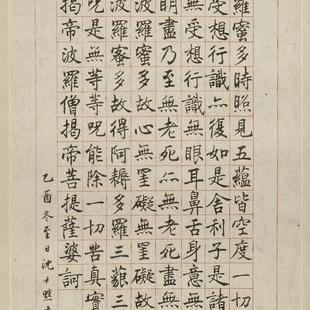 羅蜜多時照見五蘊皆空度一切
受想行識亦復如是舍利子是諸
無受想行識無眼耳鼻舌身意無
明盡乃至無老死亦無老死盡無
波羅蜜多故心無罣礙無罣礙故
波羅蜜多故得阿耨多羅三藐三
呪是無等等呪能除一切苦真實
揭帝波羅僧揭帝菩提薩婆訶
乙酉冬至日沈尹默